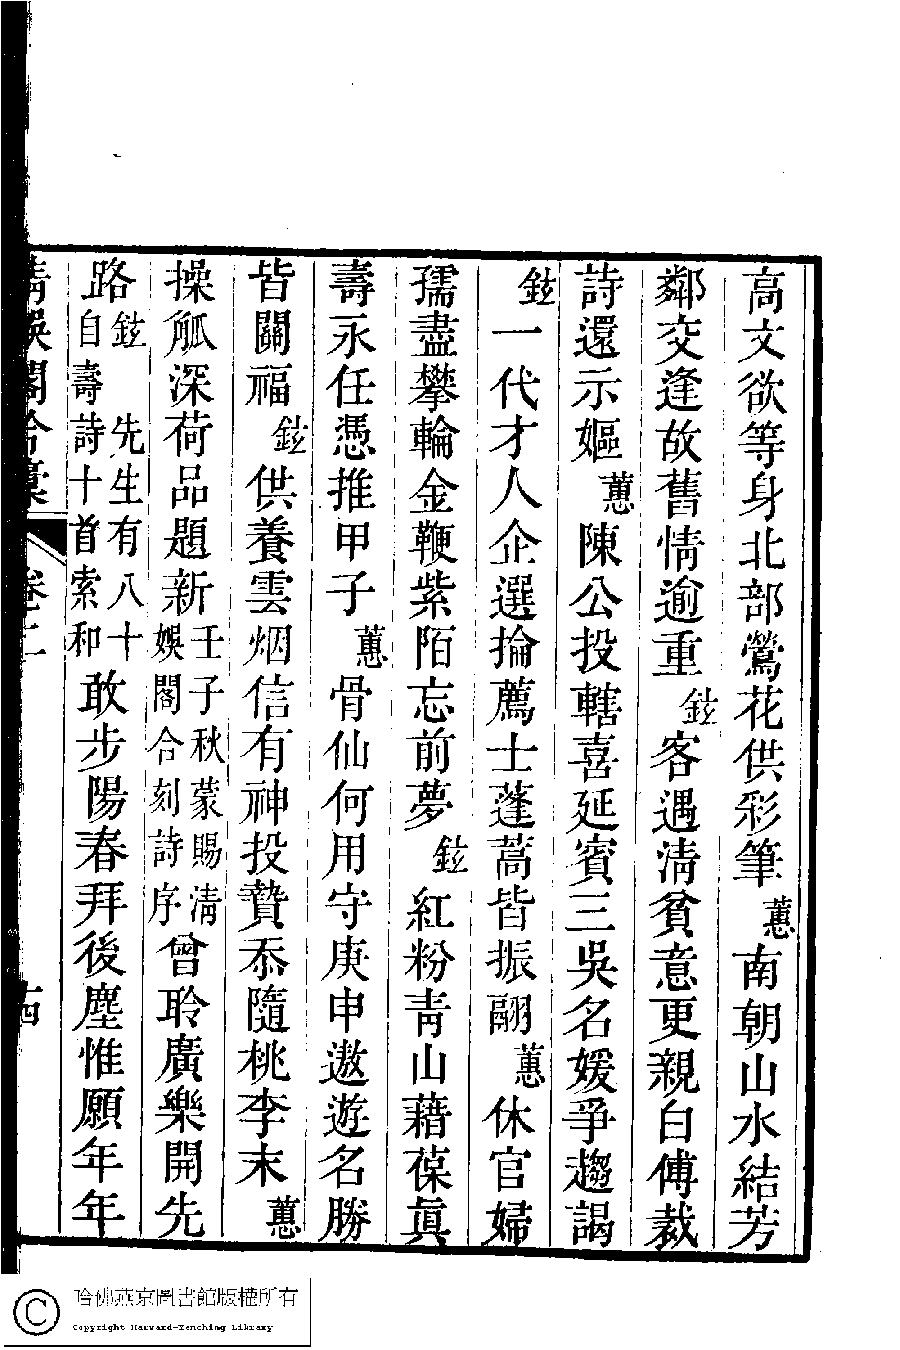 高文欲等身北部鶯花供彩筆蕙南朝山水結芳
鄰交逢故舊情逾重鉉客遇清貧意更親白傅裁
詩還示嫗蕙陳公投轄喜延賓三吳名媛爭趨謁
鉉一代才人企選掄薦士蓬蒿皆振翮蕙休官婦
孺盡攀輪金鞭紫陌忘前夢鉉紅粉青山藉葆眞
壽永任憑推甲子蕙骨仙何用守庚申遨遊名勝
皆關福鉉供養雲烟信有神投贄忝隨桃李末蕙
操觚深荷品題新壬子秋蒙賜清娛閣合刻詩序曾聆廣樂開先
路鉉先生有八十自壽詩十首索和敢步陽春拜後塵惟願年年
清娛閣合稾 卷二 十四
哈佛燕京圖書館版權所有
Copyright Harvard-Yenching Library